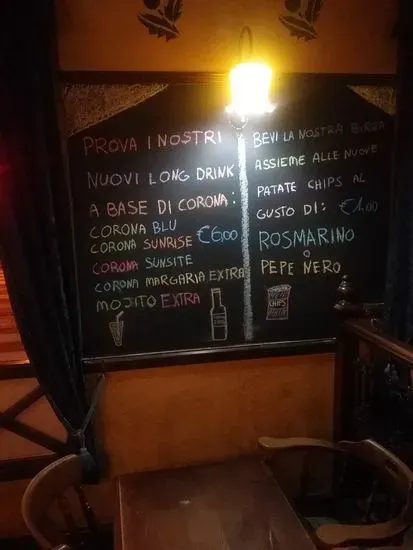 PROVA I NOSTRI
NUOVI LONG DRINK
A BASE DI CORONA:
CORONA BLU
CORONA SUNRISE €6,00
CORONA SUNSITE
CORONA MARGARIA EXTRA
MOJITO EXTRA
BEVI LA NOSTRA BIRRA
ASSIEME ALLE NUOVE
PATATE CHIPS AL
GUSTO DI: €1,00
ROSMARINO
O
PEPE NERO
CHIPS